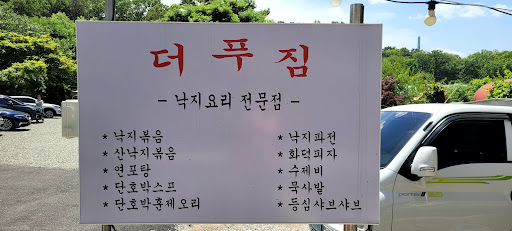 더푸짐
- 낙지요리 전문점 -
* 낙지볶음
* 산낙지볶음
* 연포탕
* 단호박스프
* 단호박훈제오리
* 낙지파전
* 화덕피자
* 수제비
* 묵사발
* 등심샤브샤브